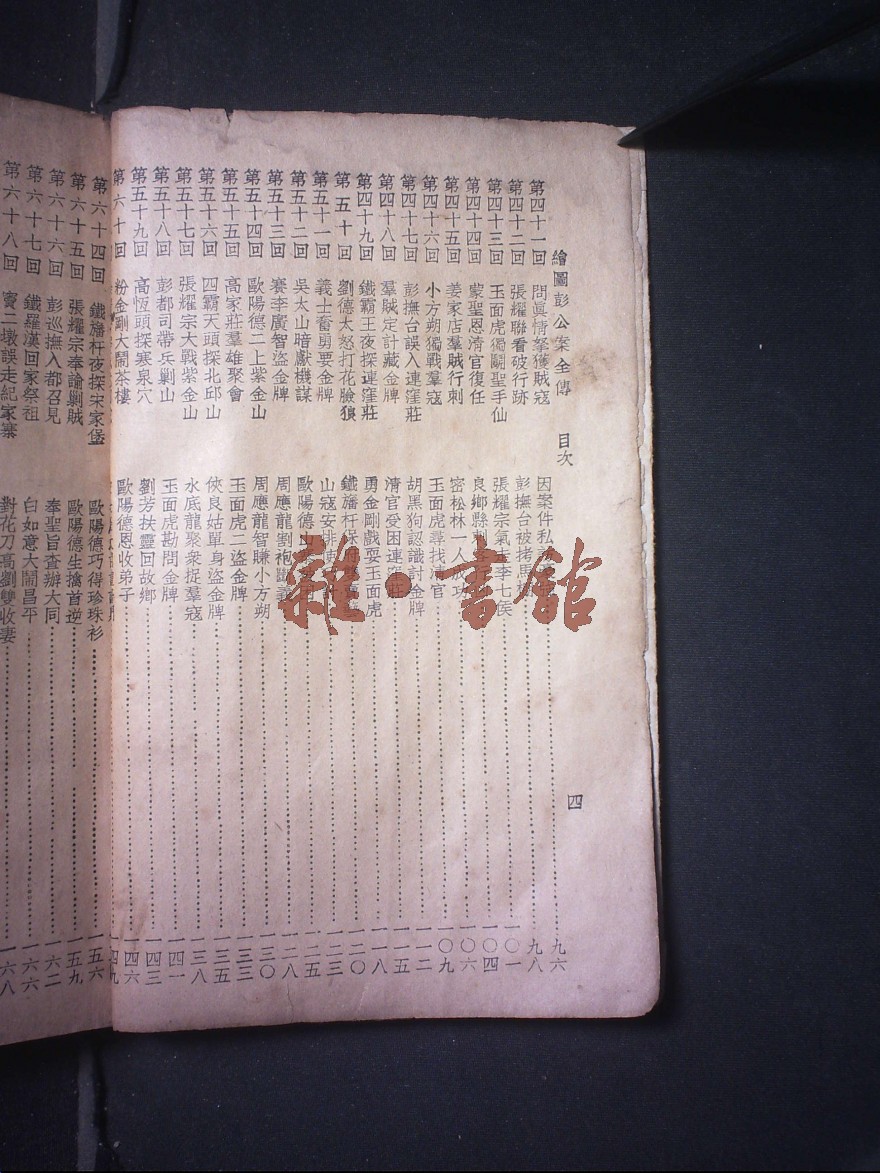 繪圖彭公案全傳 目次 四
第四十一回 問眞情拏獲賊寇 因案件私 九六
第四十二回 張耀聯看破行跡 彭撫台被拷馬 九八
第四十三回 玉面虎獨鬭聖手仙 張耀宗氣走李七侯 一〇一
第四十四回 蒙聖恩清官復任 良鄉縣刺 一〇四
第四十五回 姜家店羣賊行刺 密松林一人成功 一〇六
第四十六回 小方朔獨戰羣寇 玉面虎尋找清官 一〇九
第四十七回 彭撫台誤入連窪莊 胡黑狗認識討金牌 一一二
第四十八回 羣賊定計藏金牌 清官受困連窪莊 一一五
第四十九回 鐵霸王夜探連窪莊 勇金剛戲耍玉面虎 一一八
第五十回 劉德太怒打花臉狼 鐵旛杆 一二〇
第五十一回 義士奮勇要金牌 山寇安排使 一二三
第五十二回 吳太山暗獻機謀 歐陽德山 一二五
第五十三回 賽李廣智盜金牌 周應龍割袍斷義 一二八
第五十四回 歐陽德二上紫金山 周應龍智賺小方朔 一三〇
第五十五回 高家莊羣雄聚會 玉面虎二盜金牌 一三三
第五十六回 四霸天頭探北邱山 俠良姑單身盜金牌 一三五
第五十七回 張耀宗大戰紫金山 水底龍聚衆捉羣寇 一三八
彭都司帶兵剿山 玉面虎勘問金牌 一四一
第五十九回 高恆頭探寒泉穴 劉芳扶靈回故鄉 一四三
第六十回 粉金剛大鬧茶樓 歐陽德恩收弟子 一四六
四九
第六十四回 鐵旛杆夜探宋家堡 歐陽德巧得珍珠衫 一五六
第六十五回 張耀宗奉諭剿賊 歐陽德生擒首逆 一五九
第六十六回 彭巡撫入都召見 奉聖旨查辦大同 一六二
第六十七回 鐵羅漢回家祭祖 白如意大鬧昌平 一六六
第六十八回 竇二墩誤走紀家寨 對花刀高劉雙收妻 一六八
雜·書館